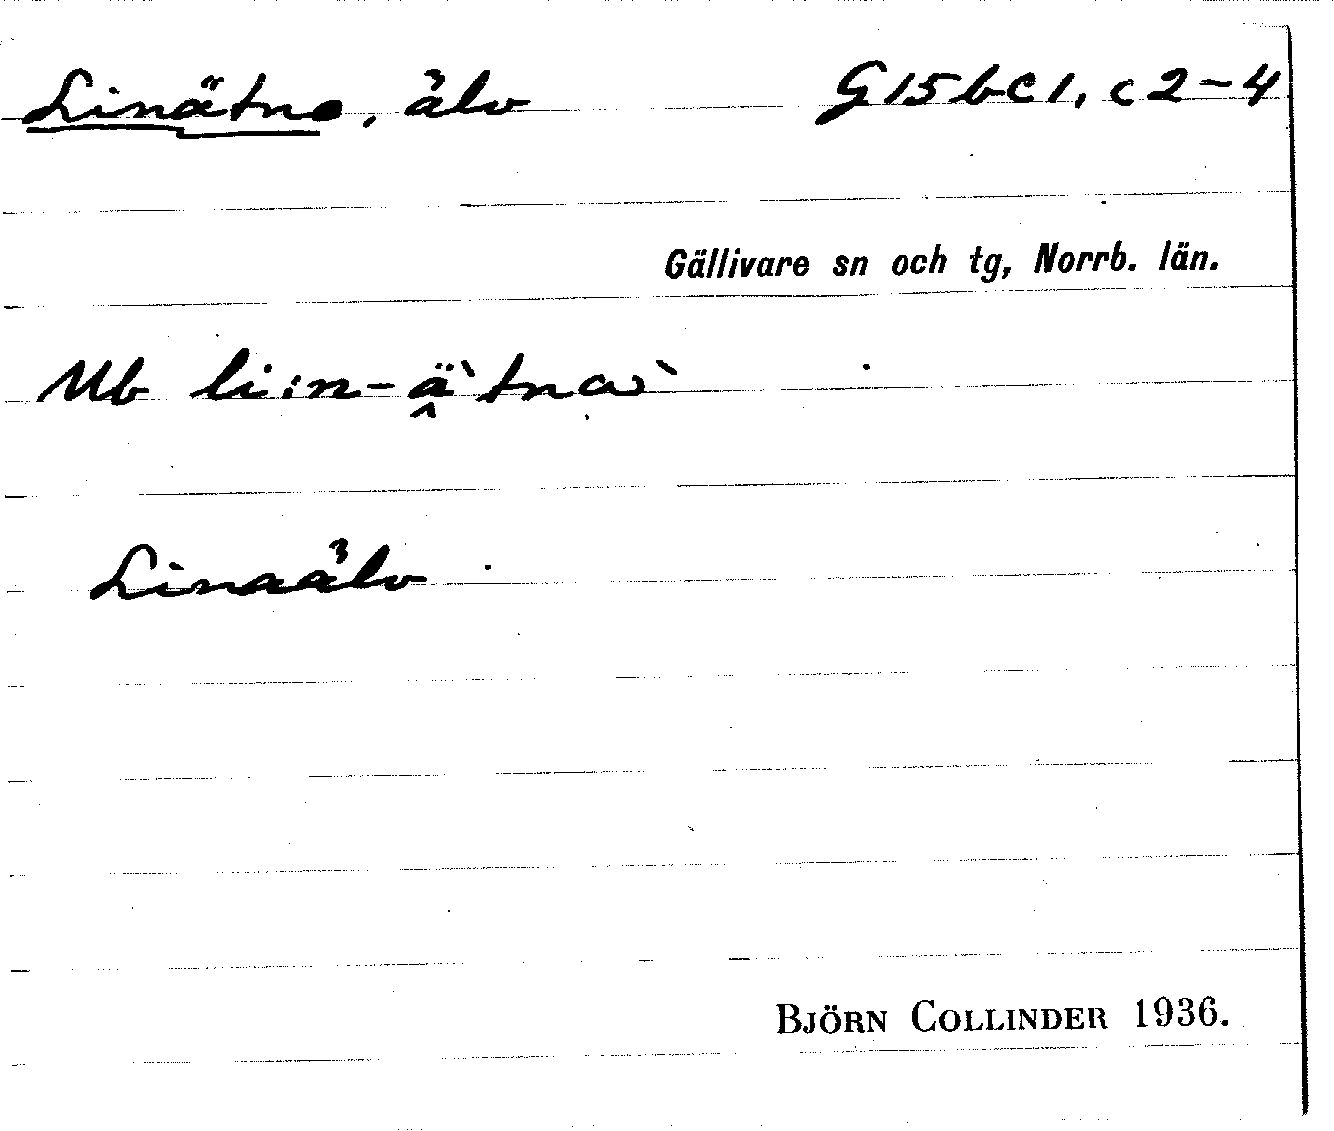 Linätno, älv G15bc1, c2-4
Gällivare sn och tg, Norrb. län.
Ub li:n-ä̭`tnaω`
Linaälv
BJÖRN COLLINDER 1936.